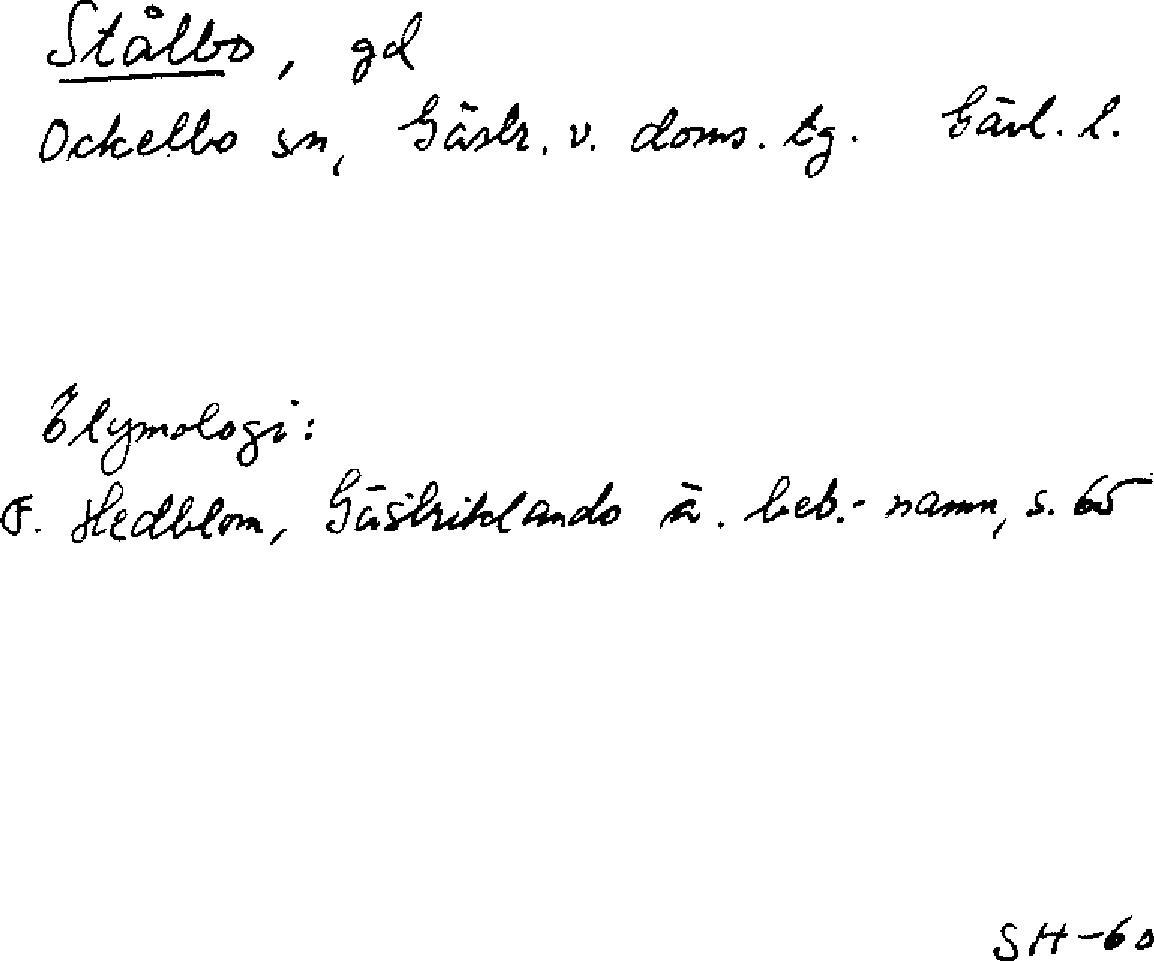 Stålbo, gd
Ockelbo sn, Gästr. v. doms. tg. Gävl. l.
Etymologi:
F. Hedblom, Gästriklands ä. beb.-namn, s. 65
SH-60